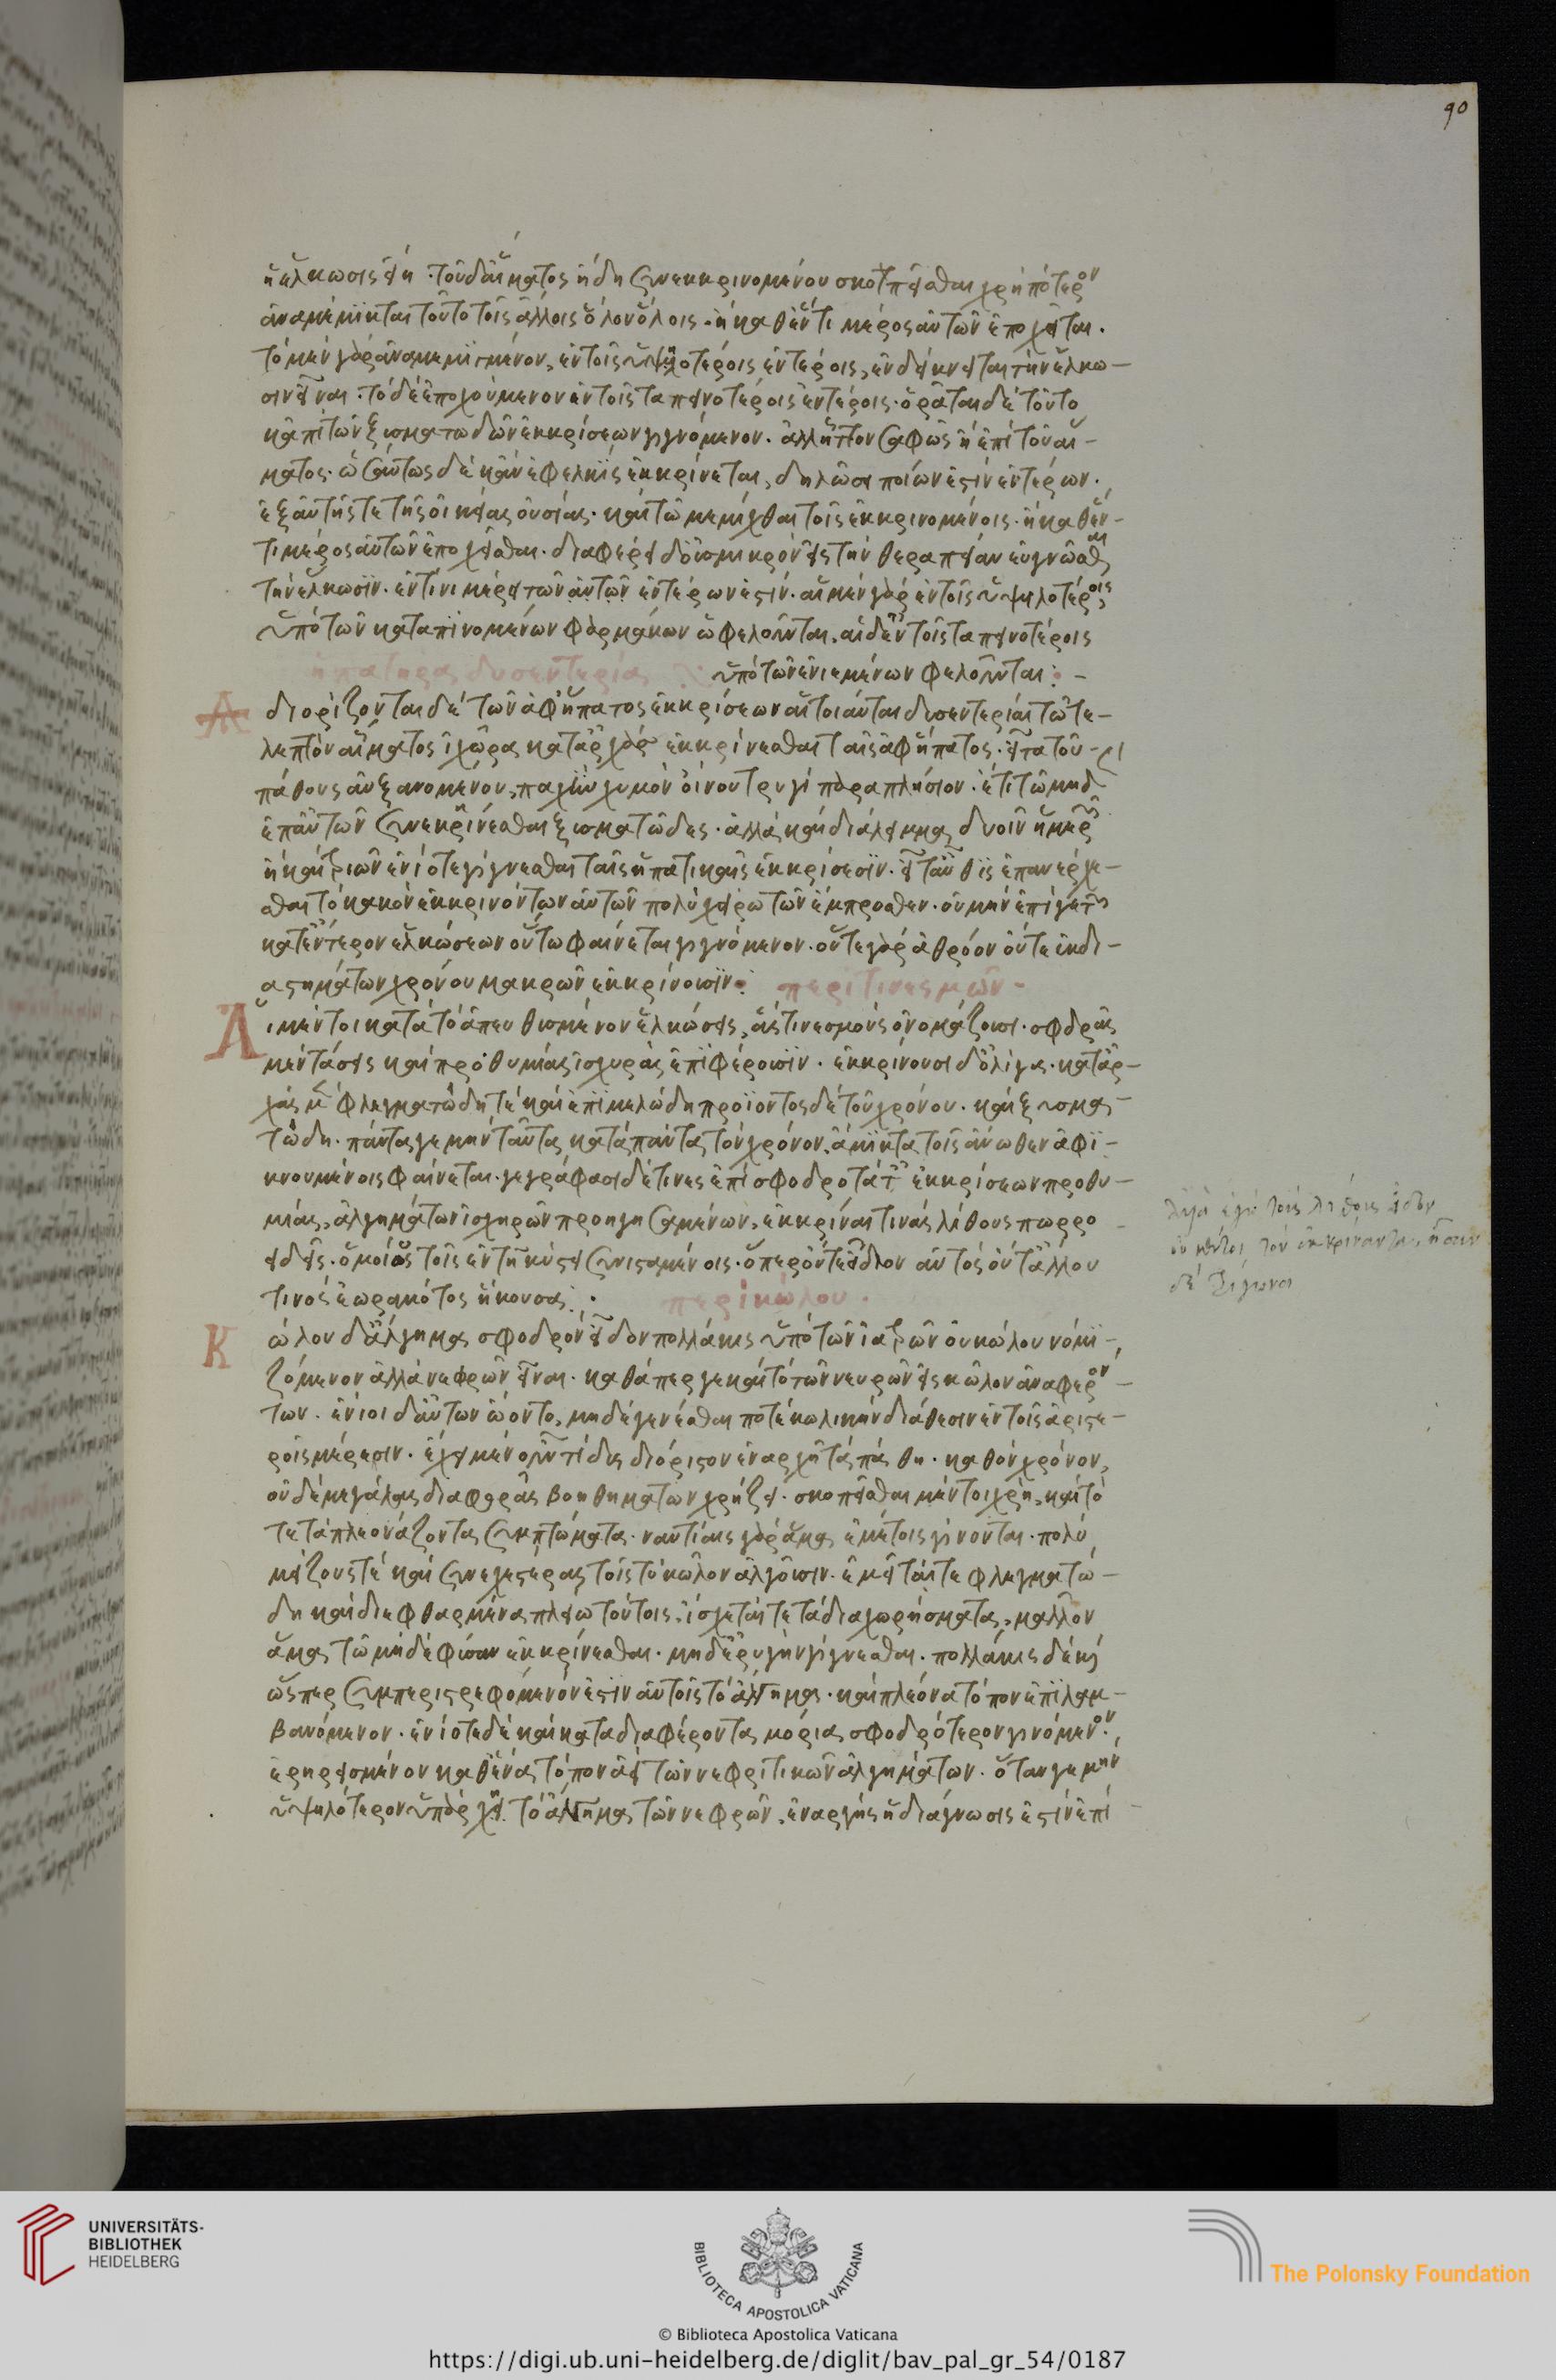 90
ἡ ἕλκωσις εἴη · τοῦ δ' αἵματος ἤδη συνεκκρινομένου σκοπεῖσθαι χρὴ πότερον
ἀναμέμικται τοῦτο τοῖς ἄλλοις ὅλον ὅλοις · ἢ καθ' ἕν τι μέρος αὐτῶν ἐποχεῖται ·
τὸ μὲν γὰρ ἀναμεμιγμένον, ἐν τοῖς ὑψηλοτέροις ἐντέροις, ἐνδείκνυται τὴν ἕλκω-
σιν εἶναι · τὸ δὲ ἐποχούμενον ἐν τοῖς ταπεινοτέροις ἐντέροις · ὁρᾶται δὲ τοῦτο
κἀπὶ τῶν ξυσματωδῶν ἐκκρίσεων γιγνόμενον · ἀλλ' ἧττον σαφῶς ἢ ἐπὶ τοῦ αἵ-
ματος · ὡσαύτως δὲ κἂν ἐφελκὶς ἐκκρίνεται, δηλώσει ποίων ἐστὶν ἐντέρων ·
ἐξ αὐτῆς τε τῆς οἰκείας οὐσίας · καὶ τῷ μεμίχθαι τοῖς ἐκκρινομένοις · ἢ καθ' ἕν
τι μέρος αὐτῶν ἐποχεῖσθαι · διαφέρει δ' οὐ σμικρὸν εἰς τὴν θεραπείαν εὖ γνῶσθαι
τὴν ἕλκωσιν · ἐν τίνι μέρει τῶν αὐτῶν ἐντέρων ἐστίν · αἱ μὲν γὰρ ἐν τοῖς ὑψηλοτέροις
ὑπὸ τῶν καταπινομένων φαρμάκων ὠφελοῦνται, αἱ δ' ἐν τοῖς ταπεινοτέροις
ἡπατηρᾶς δυσεντερίας ὑπὸ τῶν ἐνιεμένων φελοῦνται : -
διορίζονται δὲ τῶν ἀφ' ἥπατος ἐκκρίσεων αἱ τοιαῦται δυσεντερίαι τῷ τε
λεπτὸν αἵματος ἰχῶρα κατ' ἀρχὰς ἐκκρίνεσθαι ταῖς ἀφ' ἥπατος · εἶτα τοῦ
πάθους αὐξανομένου, παχὺν χυμὸν οἴνου τρυγὶ παραπλήσιον · ἔτι τῷ μηδ'
ἐπ' αὐτῶν συνεκκρίνεσθαι ξυσματῶδες · ἀλλὰ καὶ διάλειμμα δυοῖν ἡμερῶν
ἢ καὶ τριῶν ἐνίοτε γίγνεσθαι ταῖς ἡπατικαῖς ἐκκρίσεσιν · εἶτ' αὖθις ἐπανέρχε-
σθαι τὸ κακὸν ἐκκρινόντων αὐτῶν πολὺ χείρω τῶν ἔμπροσθεν · οὐ μὴν ἐπί γε τῶν
κατ' ἔντερον ἑλκώσεων οὕτω φαίνεται γιγνόμενον · οὔτε γὰρ ἀθρόον οὔτε ἐκ δι-
αστημάτων χρόνου μακρῶν ἐκκρίνουσιν : περὶ τινεσμῶν ·
Αἱ μέντοι κατὰ τὸ ἀπευθυσμένον ἑλκώσεις, ἃς τινεσμοὺς ὀνομάζουσι · σφοδρὰς
μὲν τάσεις καὶ προθυμίας ἰσχυρὰς ἐπιφέρουσιν · ἐκκρίνουσι δ' ὀλίγα · κατ' ἀρ-
χὰς μὲν φλεγματώδη τὲ καὶ ἐπιμελώδη προϊόντος δὲ τοῦ χρόνου · καὶ ξυσμα-
τώδη · πάντα γε μὴν ταῦτα κατὰ πάντα τὸν χρόνον, ἄμικτα τοῖς ἄνωθεν ἀφι-
κνουμένοις φαίνεται · γεγράφασι δέ τινες ἐπὶ σφοδροτάτων ἐκκρίσεων προθυ-
μίαις, ἀλγημάτων ἰσχυρῶν προηγησαμένων, ἐκκρίναι τινὰς λίθους πωρρο
ειδεῖς · ὁμοίους τοῖς ἐν τῇ κύστει συνισταμένοις · ὅπερ οὔτ' εἶδον αὐτὸς οὔτ' ἄλλου
τινὸς ἑωρακότος ἤκουσα : · περὶ κώλου ·
Κώλου δ' ἄλγημα σφοδρὸν εἶδον πολλάκις ὑπὸ τῶν ἰατρῶν οὐ κώλου νομι-
ζόμενον ἀλλὰ νεφρῶν εἶναι · καθάπερ γε καὶ τὸ τῶν νευρῶν εἰς κῶλον ἀναφερόν-
των · ἔνιοι δ' αὐτῶν ᾤοντο, μηδὲ γενέσθαι ποτὲ κωλικὴν διάθεσιν ἐν τοῖς ἀριστε-
ροῖς μέρεσιν · ἔχει μὲν οὖν τι δυσδιόριστον ἐν ἀρχῇ τὰ πάθη · καθ' ὃν χρόνον,
οὐδὲ μεγάλης διαφορᾶς βοηθημάτων χρῄζει · σκοπεῖσθαι μέντοι χρὴ, καὶ τό
τε τὰ πλεονάζοντα συμπτώματα · ναυτίαις γὰρ ἅμα ἐμέτοις γίνονται · πολὺ
μείζους τὲ καὶ συνεχέστεραι τοῖς τὸ κῶλον ἀλγοῦσιν · ἐμεῖταί τε φλεγματώ-
δη καὶ διεφθαρμένα πλείω τούτοις, ἴσχεταί τε τὰ διαχωρήματα, μᾶλλον
ἅμα τῷ μηδὲ φύσαν ἐκκρίνεσθαι · μηδ' ἐρυγὴν γίγνεσθαι · πολλάκις δὲ καὶ
ὥσπερ συμπεριστρεφόμενόν ἐστιν αὐτοῖς τὸ ἄλγημα · καὶ πλέονα τόπον ἐπιλαμ-
βανόμενον · ἐνίοτε δὲ καὶ κατὰ διαφέροντα μόρια σφοδρότερον γινόμενον ·
ἐρηρεισμένον καθ' ἕνα τόπον ἀεὶ τῶν νεφριτικῶν ἀλγημάτων · ὅταν γε μὴν
ὑψηλότερον ὑπάρχῃ τὸ ἄλγημα τῶν νεφρῶν, ἐναργὴς ἡ διάγνωσις ἐστὶν ἐπί
UNIVERSITÄTS-
BIBLIOTHEK
HEIDELBERG
BIBLIOTECA APOSTOLICA VATICANA
The Polonsky Foundation
© Biblioteca Apostolica Vaticana
https://digi.ub.uni-heidelberg.de/diglit/bav_pal_gr_54/0187